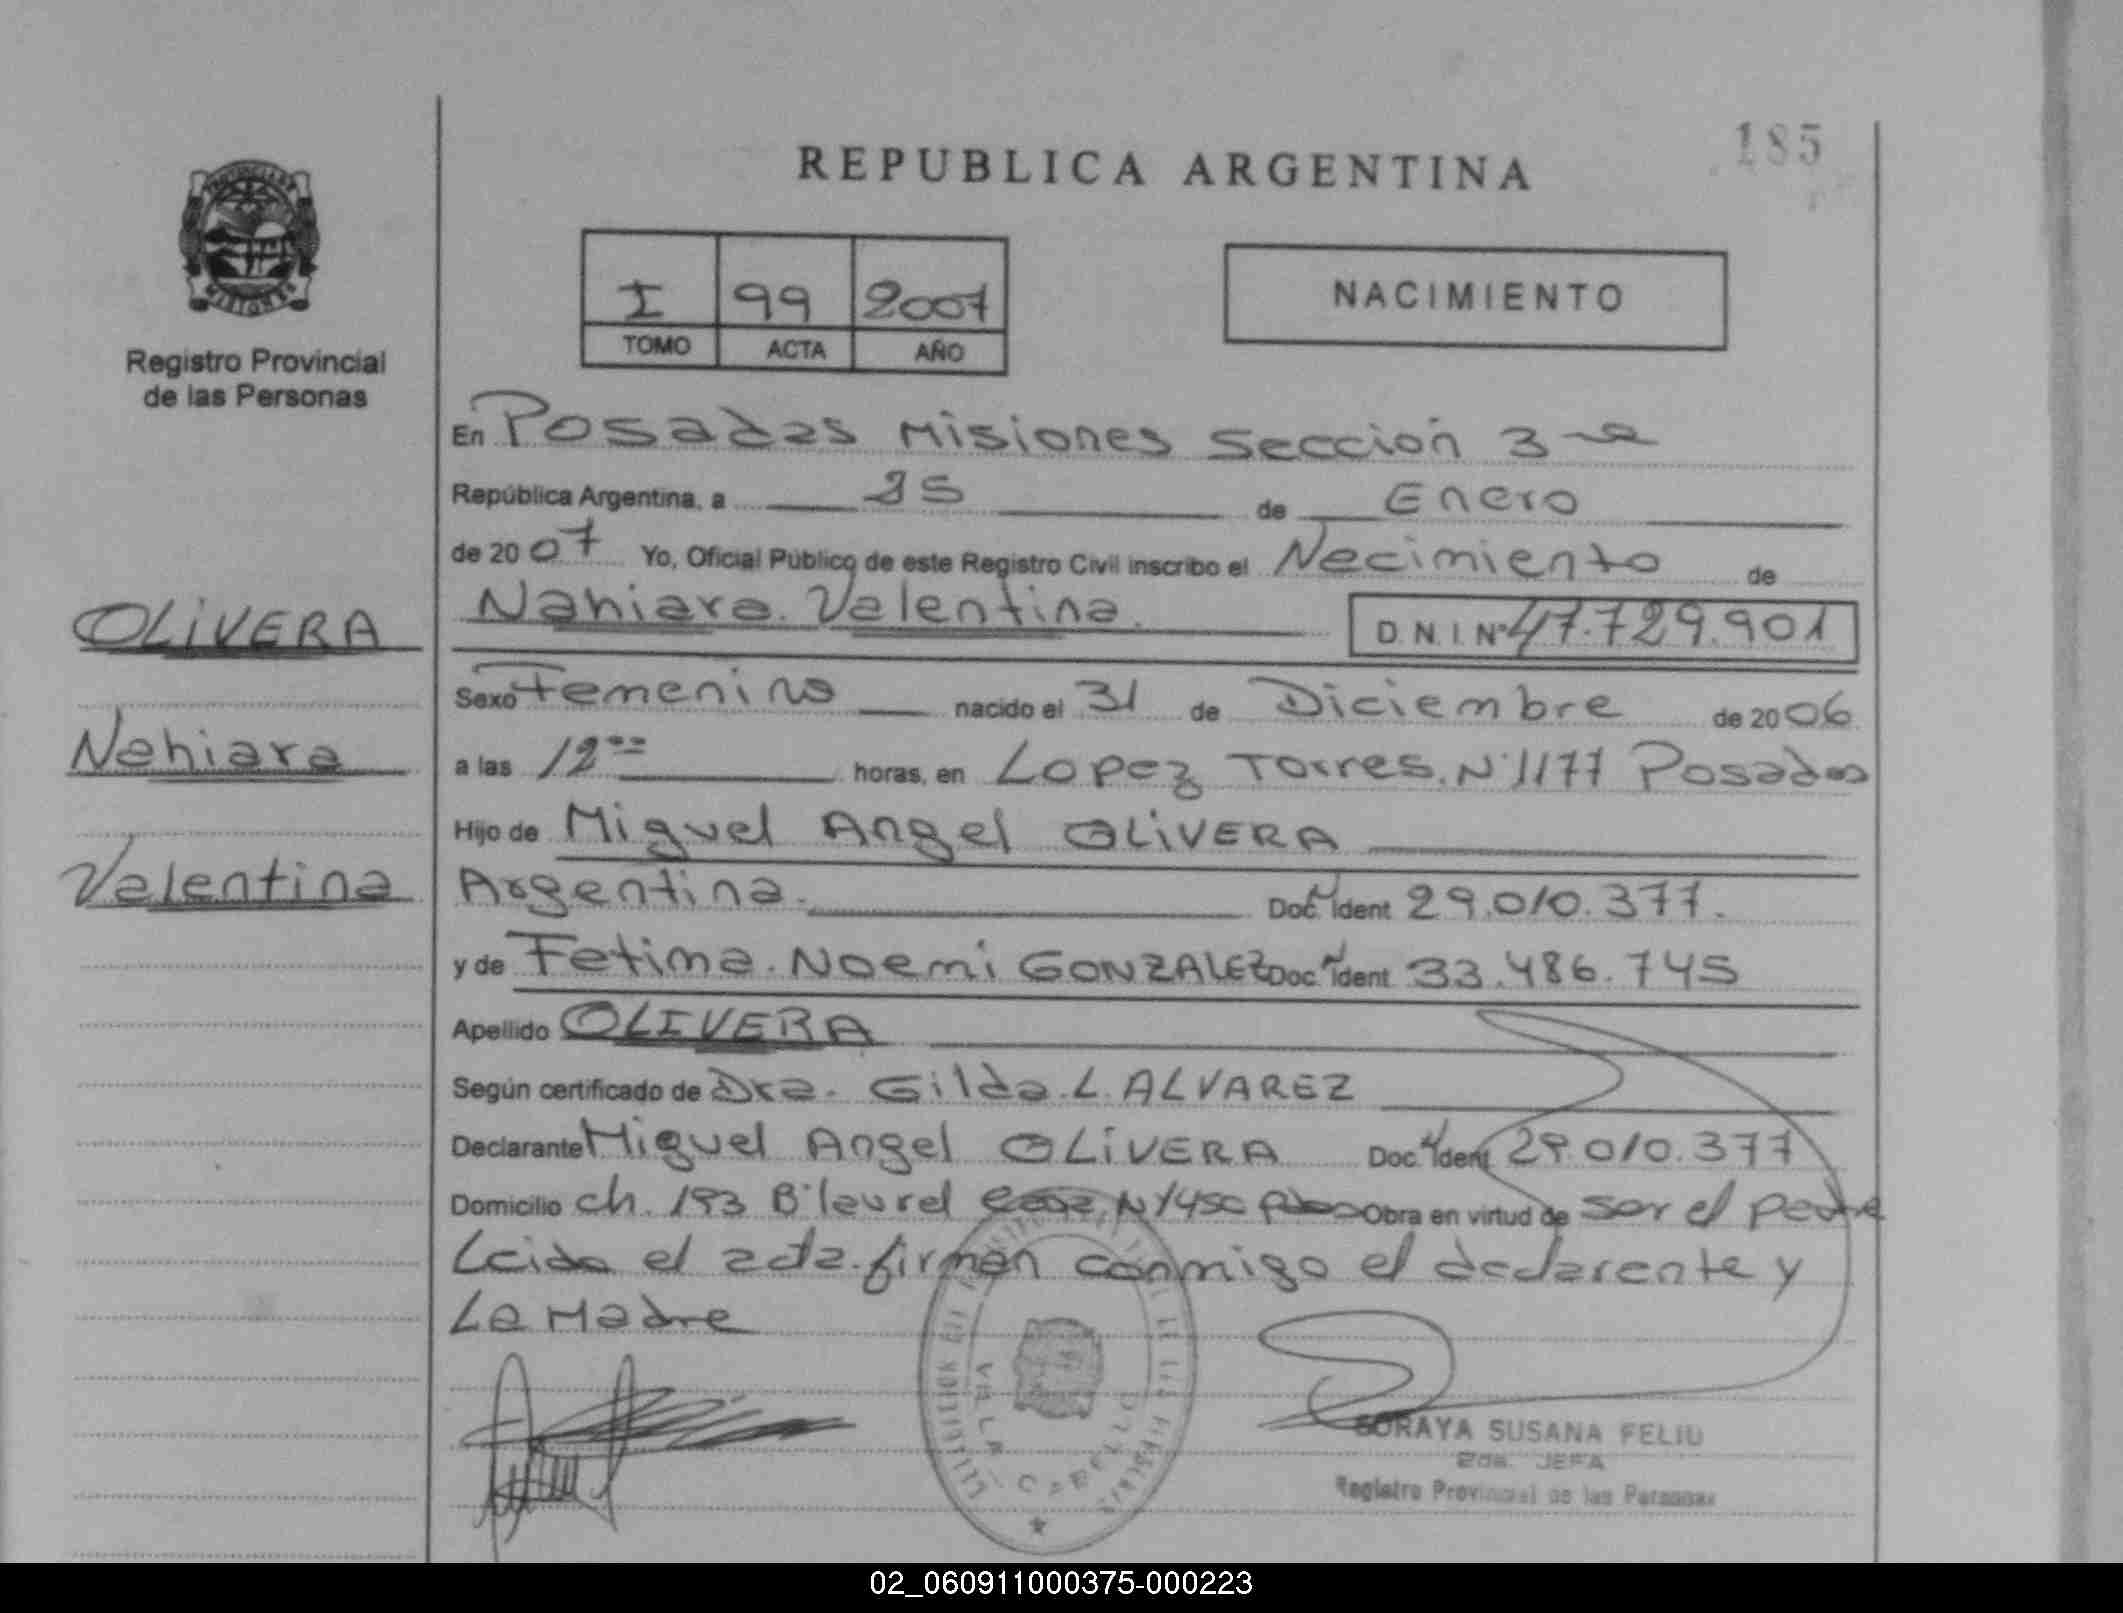 185
REPUBLICA ARGENTINA
I 99 2007
TOMO ACTA AÑO
NACIMIENTO
Registro Provincial
de las Personas
OLIVERA
Nahiara
Valentina
En Posadas Misiones Sección 3ra
República Argentina, a 25 de Enero
de 2007 Yo, Oficial Público de este Registro Civil inscribo el Nacimiento de
Nahiara Valentina. D.N.I. Nº 47.729.901
Sexo Femenino nacido el 31 de Diciembre de 2006
a las 12 horas, en Lopez Torres. Nº 1177 Posadas
Hijo de Miguel Angel OLIVERA
Argentina. Doc. Ident 29.010.377.
y de Fatima. Noemi GONZALEZ Doc. Ident 33.486.745
Apellido OLIVERA
Según certificado de Dra. Gilda. L. ALVAREZ
Declarante Miguel Angel OLIVERA Doc. Ident 29.010.377
Domicilio ch. 193 Bº laurel casa Nº Obra en virtud de ser el padre
Leida el acta. firman conmigo el declarante y
La Madre
VILLA CABELLO
SORAYA SUSANA FELIU
2da. JEFA
Registro Provincial de las Personas
02_060911000375-000223